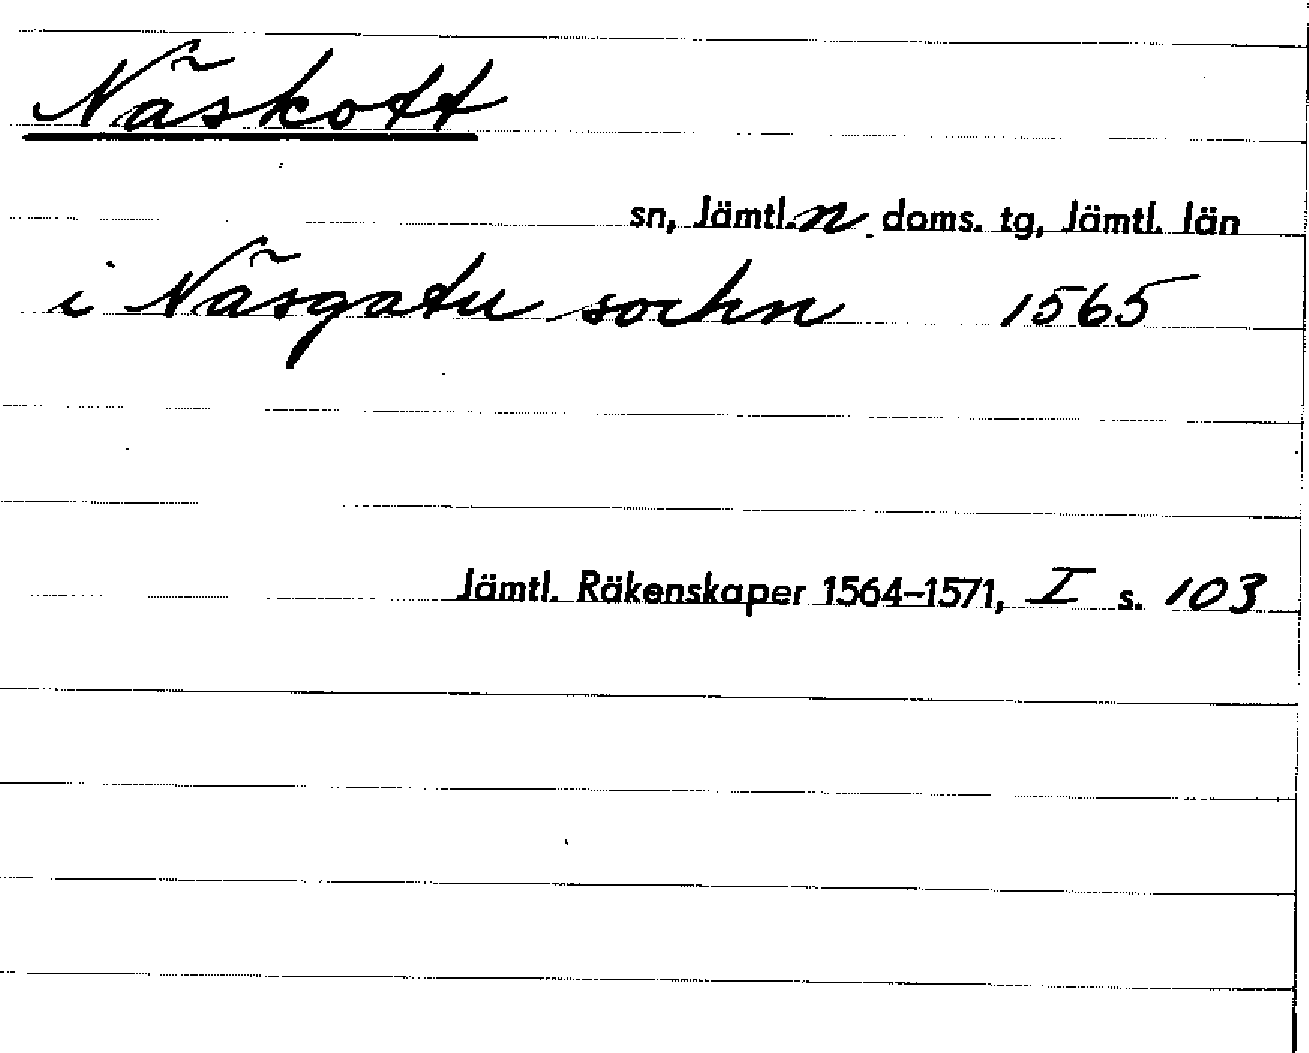 Näskott
sn, Jämtl. n. doms. tg, Jämtl. län
i Näsgatu sochn 1565
Jämtl. Räkenskaper 1564–1571, I s. 103